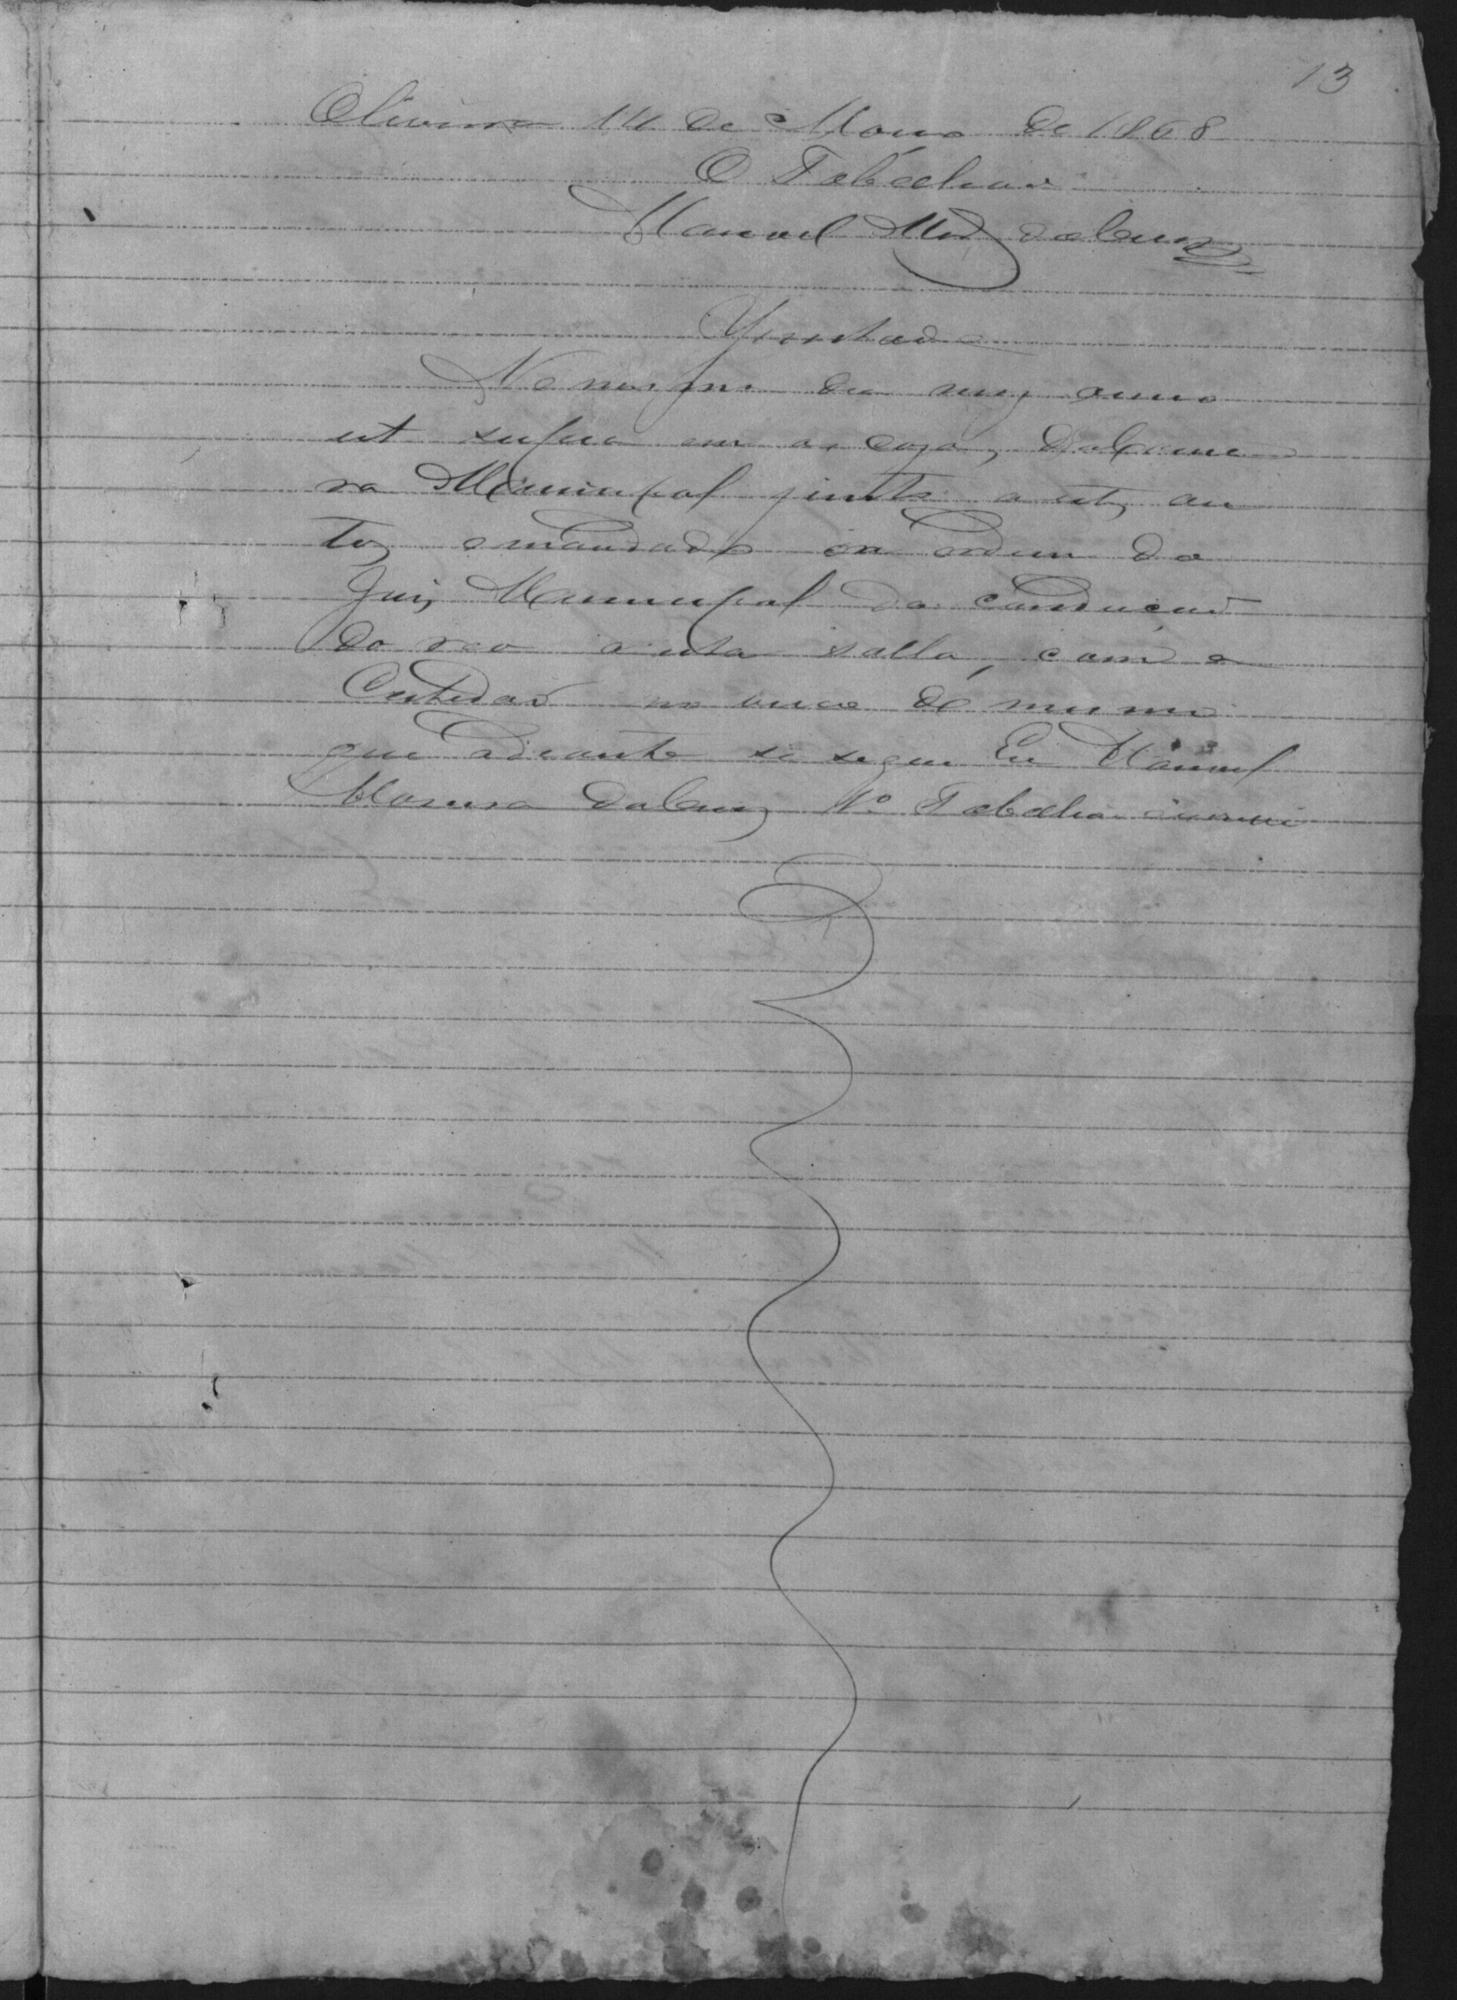 13
de Março de 1868
O Tabaliam
Manoel Mra da Cruz
Juntada
No mesmo dia mez anno
ut supra em a caza, da Came
ra Municipal junto a estes au
tos o mandado em ordem do
Juiz Municipal da conducaõ
do reo a esta salla, com a
Certidaõ no verso do mesmo
que adiante se segue Eu Manoel
Moreira da Cruz Tabaliam